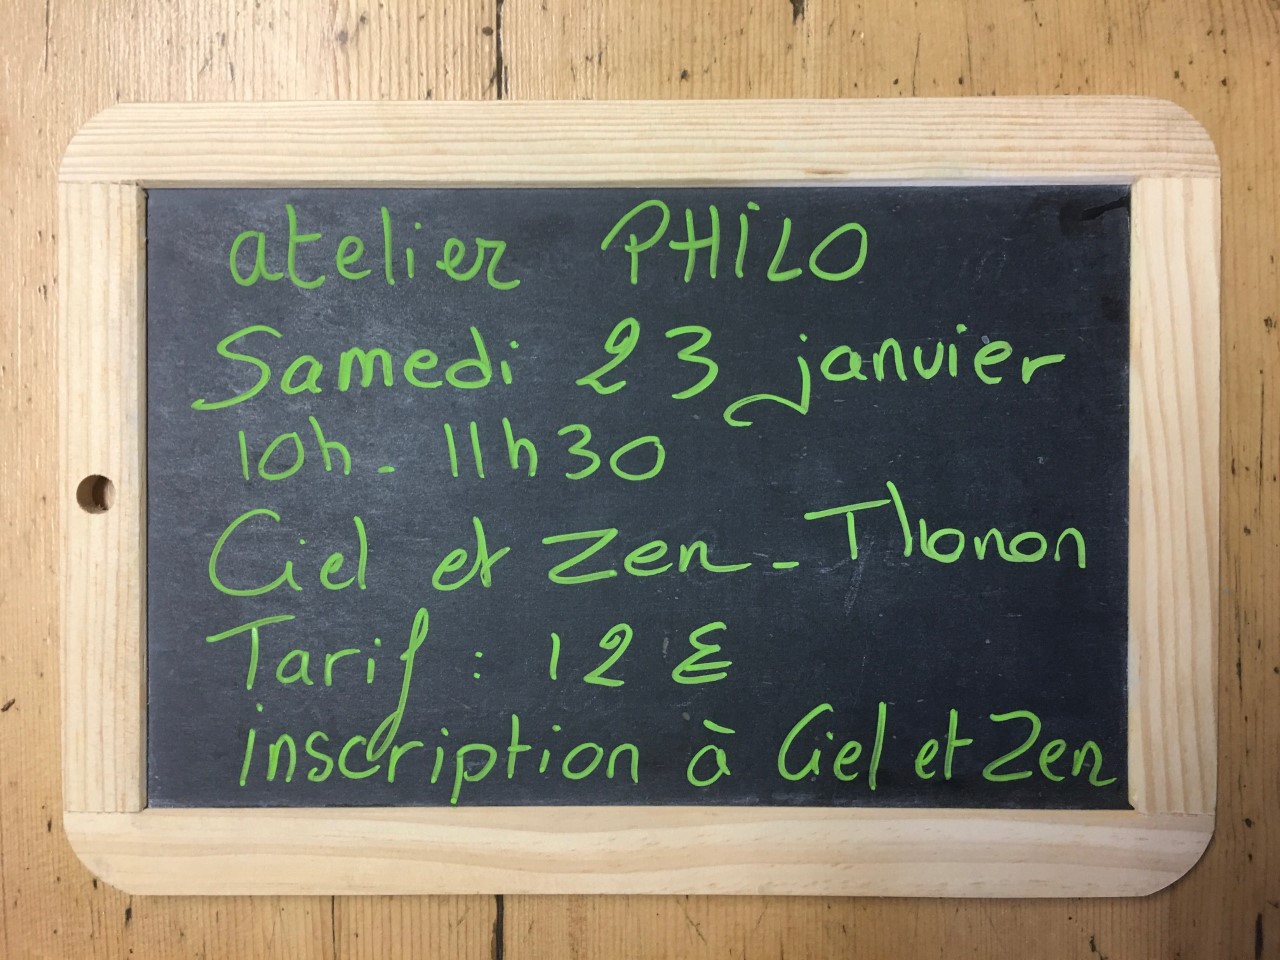 atelier PHILO
Samedi 23 janvier
10h - 11h30
Ciel et Zen - Thonon
Tarif : 12 €
inscription à Ciel et Zen